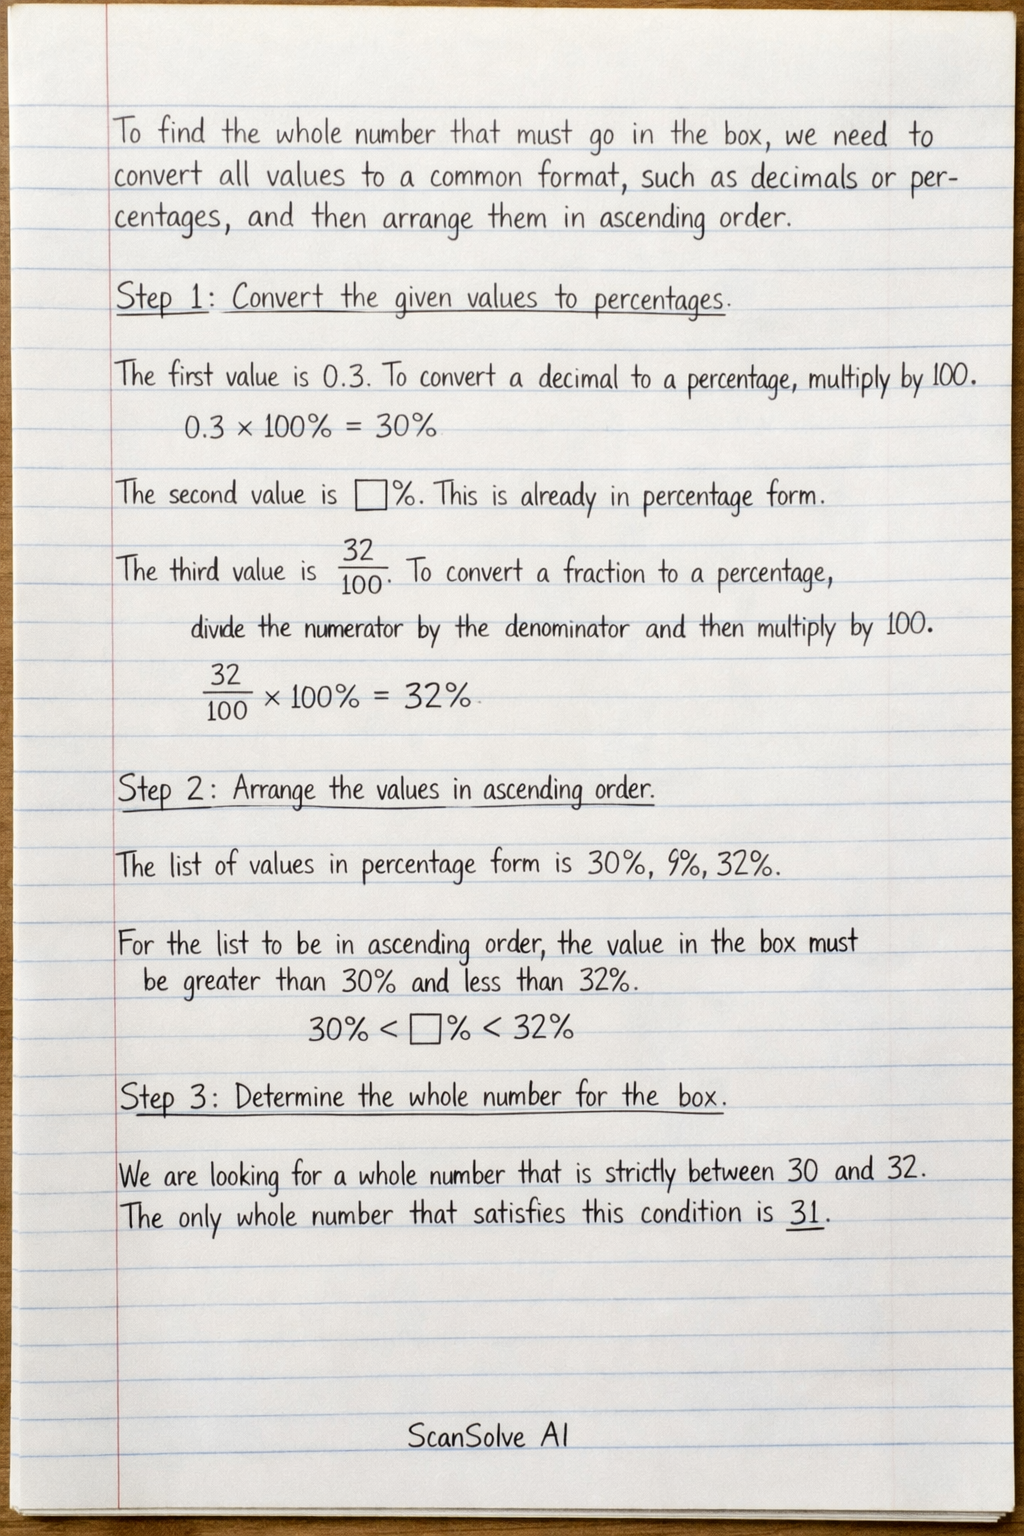 To find the whole number that must go in the box, we need to
convert all values to a common format, such as decimals or per-
centages, and then arrange them in ascending order.
Step 1: Convert the given values to percentages.
The first value is 0.3. To convert a decimal to a percentage, multiply by 100.
0.3 × 100% = 30%
The second value is □%. This is already in percentage form.
The third value is 32/100. To convert a fraction to a percentage,
divide the numerator by the denominator and then multiply by 100.
32/100 × 100% = 32%.
Step 2: Arrange the values in ascending order.
The list of values in percentage form is 30%, 9%, 32%.
For the list to be in ascending order, the value in the box must
be greater than 30% and less than 32%.
30% < □% < 32%
Step 3: Determine the whole number for the box.
We are looking for a whole number that is strictly between 30 and 32.
The only whole number that satisfies this condition is 31.
ScanSolve AI